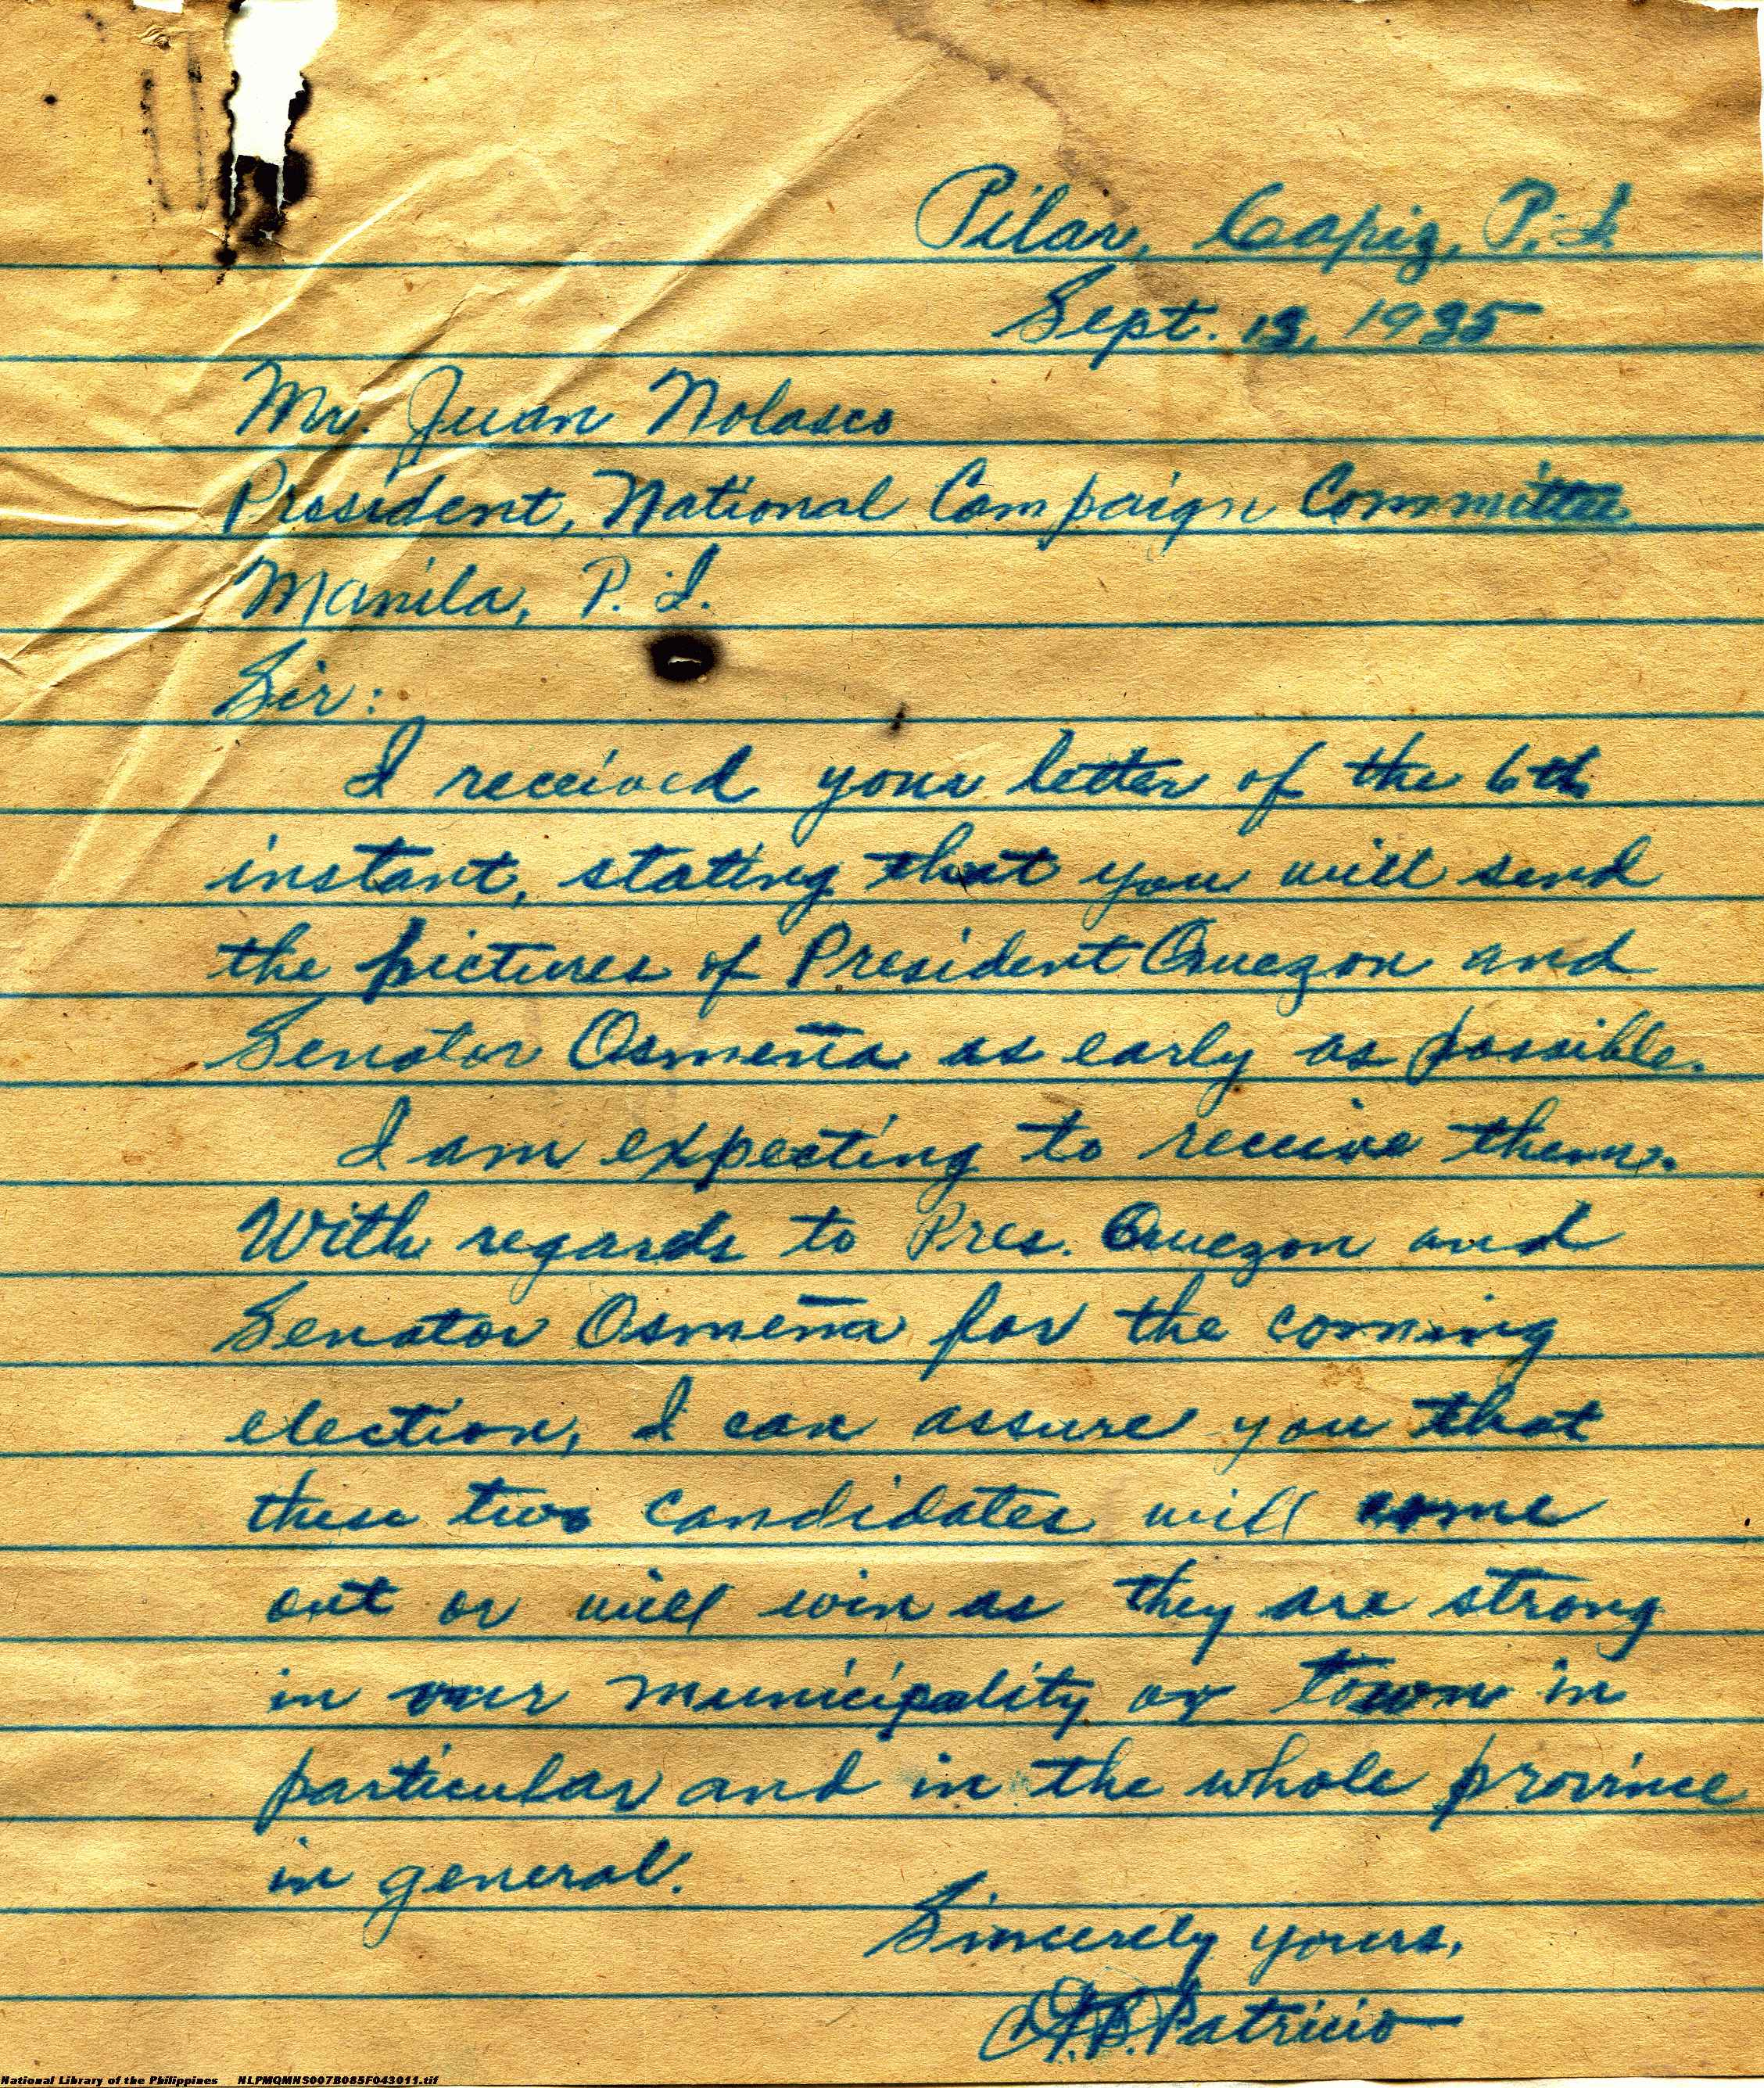 Pilar, Capiz, P. I.
Sept. 13, 1935
Mr. Juan Nolasco
President, National Campaign Committee
Manila, P. I.
Sir:
I received your letter of the 6th
instant, stating that you will send
the pictures of President Quezon and
Senator Osmeña as early as possible.
I am expecting to receive them.
With regards to Pres. Quezon and
Senator Osmeña for the coming
election, I can assure you that
these two candidates will come
out or will win as they are strong
in our municipality or town in
particular and in the whole province
in general.
Sincerely yours,
Patricio
National Library of the Philippines NLPMQMNS007B085F043011.tif